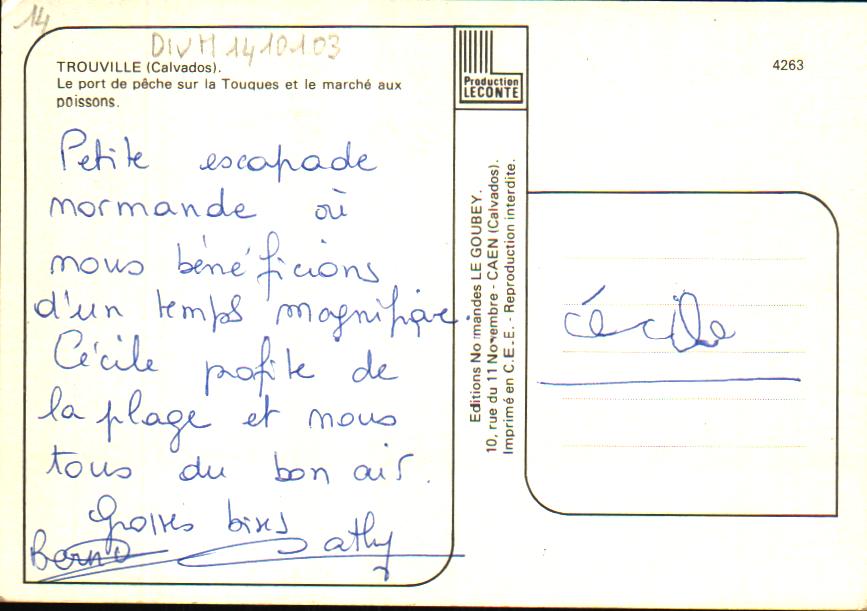 14
DIVM 1410103
TROUVILLE (Calvados).
Le port de pêche sur la Touques et le marché aux
poissons.
Petite escapade
normande où
nous bénéficions
d'un temps magnifique.
Cécile profite de
la plage et nous
tous du bon air.
Grosses bises
Cathy
Production
LECONTE
Editions Normandes LE GOUBEY.
10, rue du 11 Novembre - CAEN (Calvados).
Imprimé en C.E.E. - Reproduction interdite.
4263
Cécile